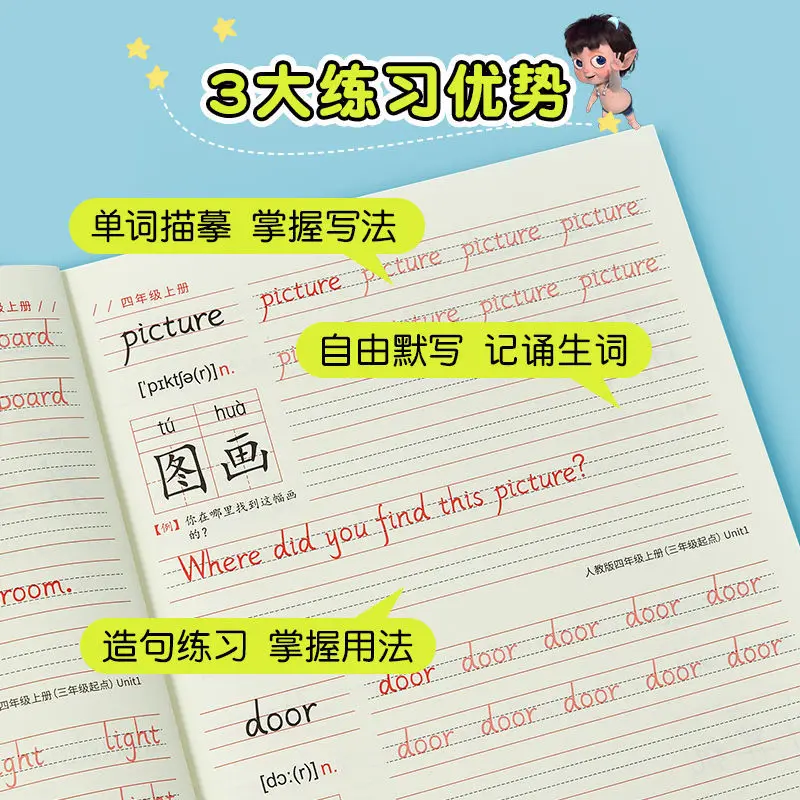 3大练习优势
单词描摹 掌握写法
级上册 / /
/ / 四年级上册
picture picture picture picture
picture
picture picture
自由默写 记诵生词
['pɪktʃə(r)]n.
tú huà
图画
【例】你在哪里找到这幅画的?
Where did you find this picture?
人教版四年级上册(三年级起点) Unit1
oard
board
room.
造句练习 掌握用法
door door door door door
door door door door door
door
[dɔː(r)]n.
四年级上册(三年级起点) Unit1
ght light